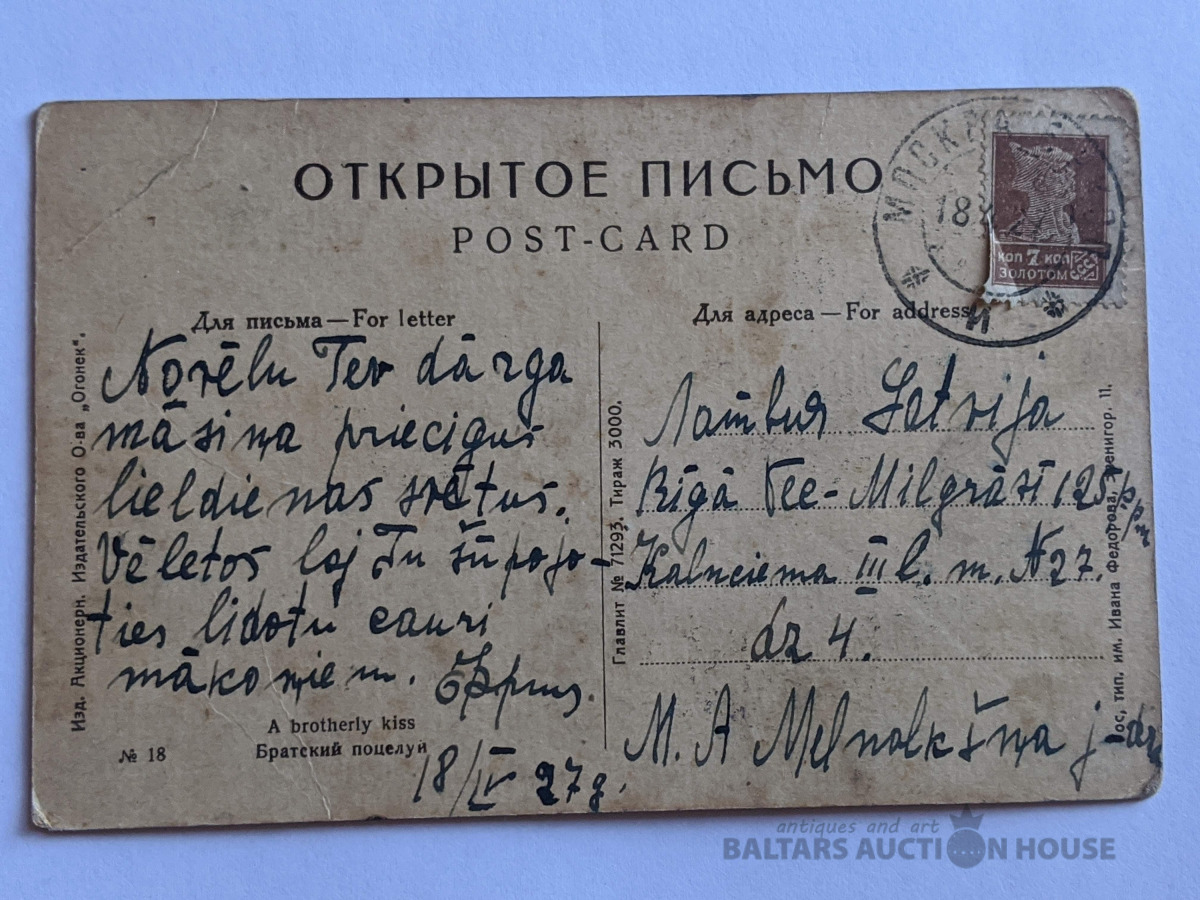 ОТКРЫТОЕ ПИСЬМО
POST-CARD
МОСКВА
18
7
КОП 7 КОП
ЗОЛОТОМ
И
Для письма — For letter
Для адреса — For address
Novēlu Tev dārga
māsiņa priecigus
lieldienas svētus.
Vēletos laj Tu šūpojo-
ties lidotu cauri
mākoņiem.
18/IV 27 g.
Латвия Latvija
Rīgā Vec-Milgrāvī 125
Kalnciema III l. m. N 27.
dz 4.
M. A Melnalkšņa j-dz
A brotherly kiss
Братский поцелуй
№ 18
Изд. Акционерн. Издательского О-ва „Огонек“.
Главлит № 71293. Тираж 3000.
Гос. тип. им. Ивана Федорова, Звенигор. 11.
antiques and art
BALTARS AUCTION HOUSE